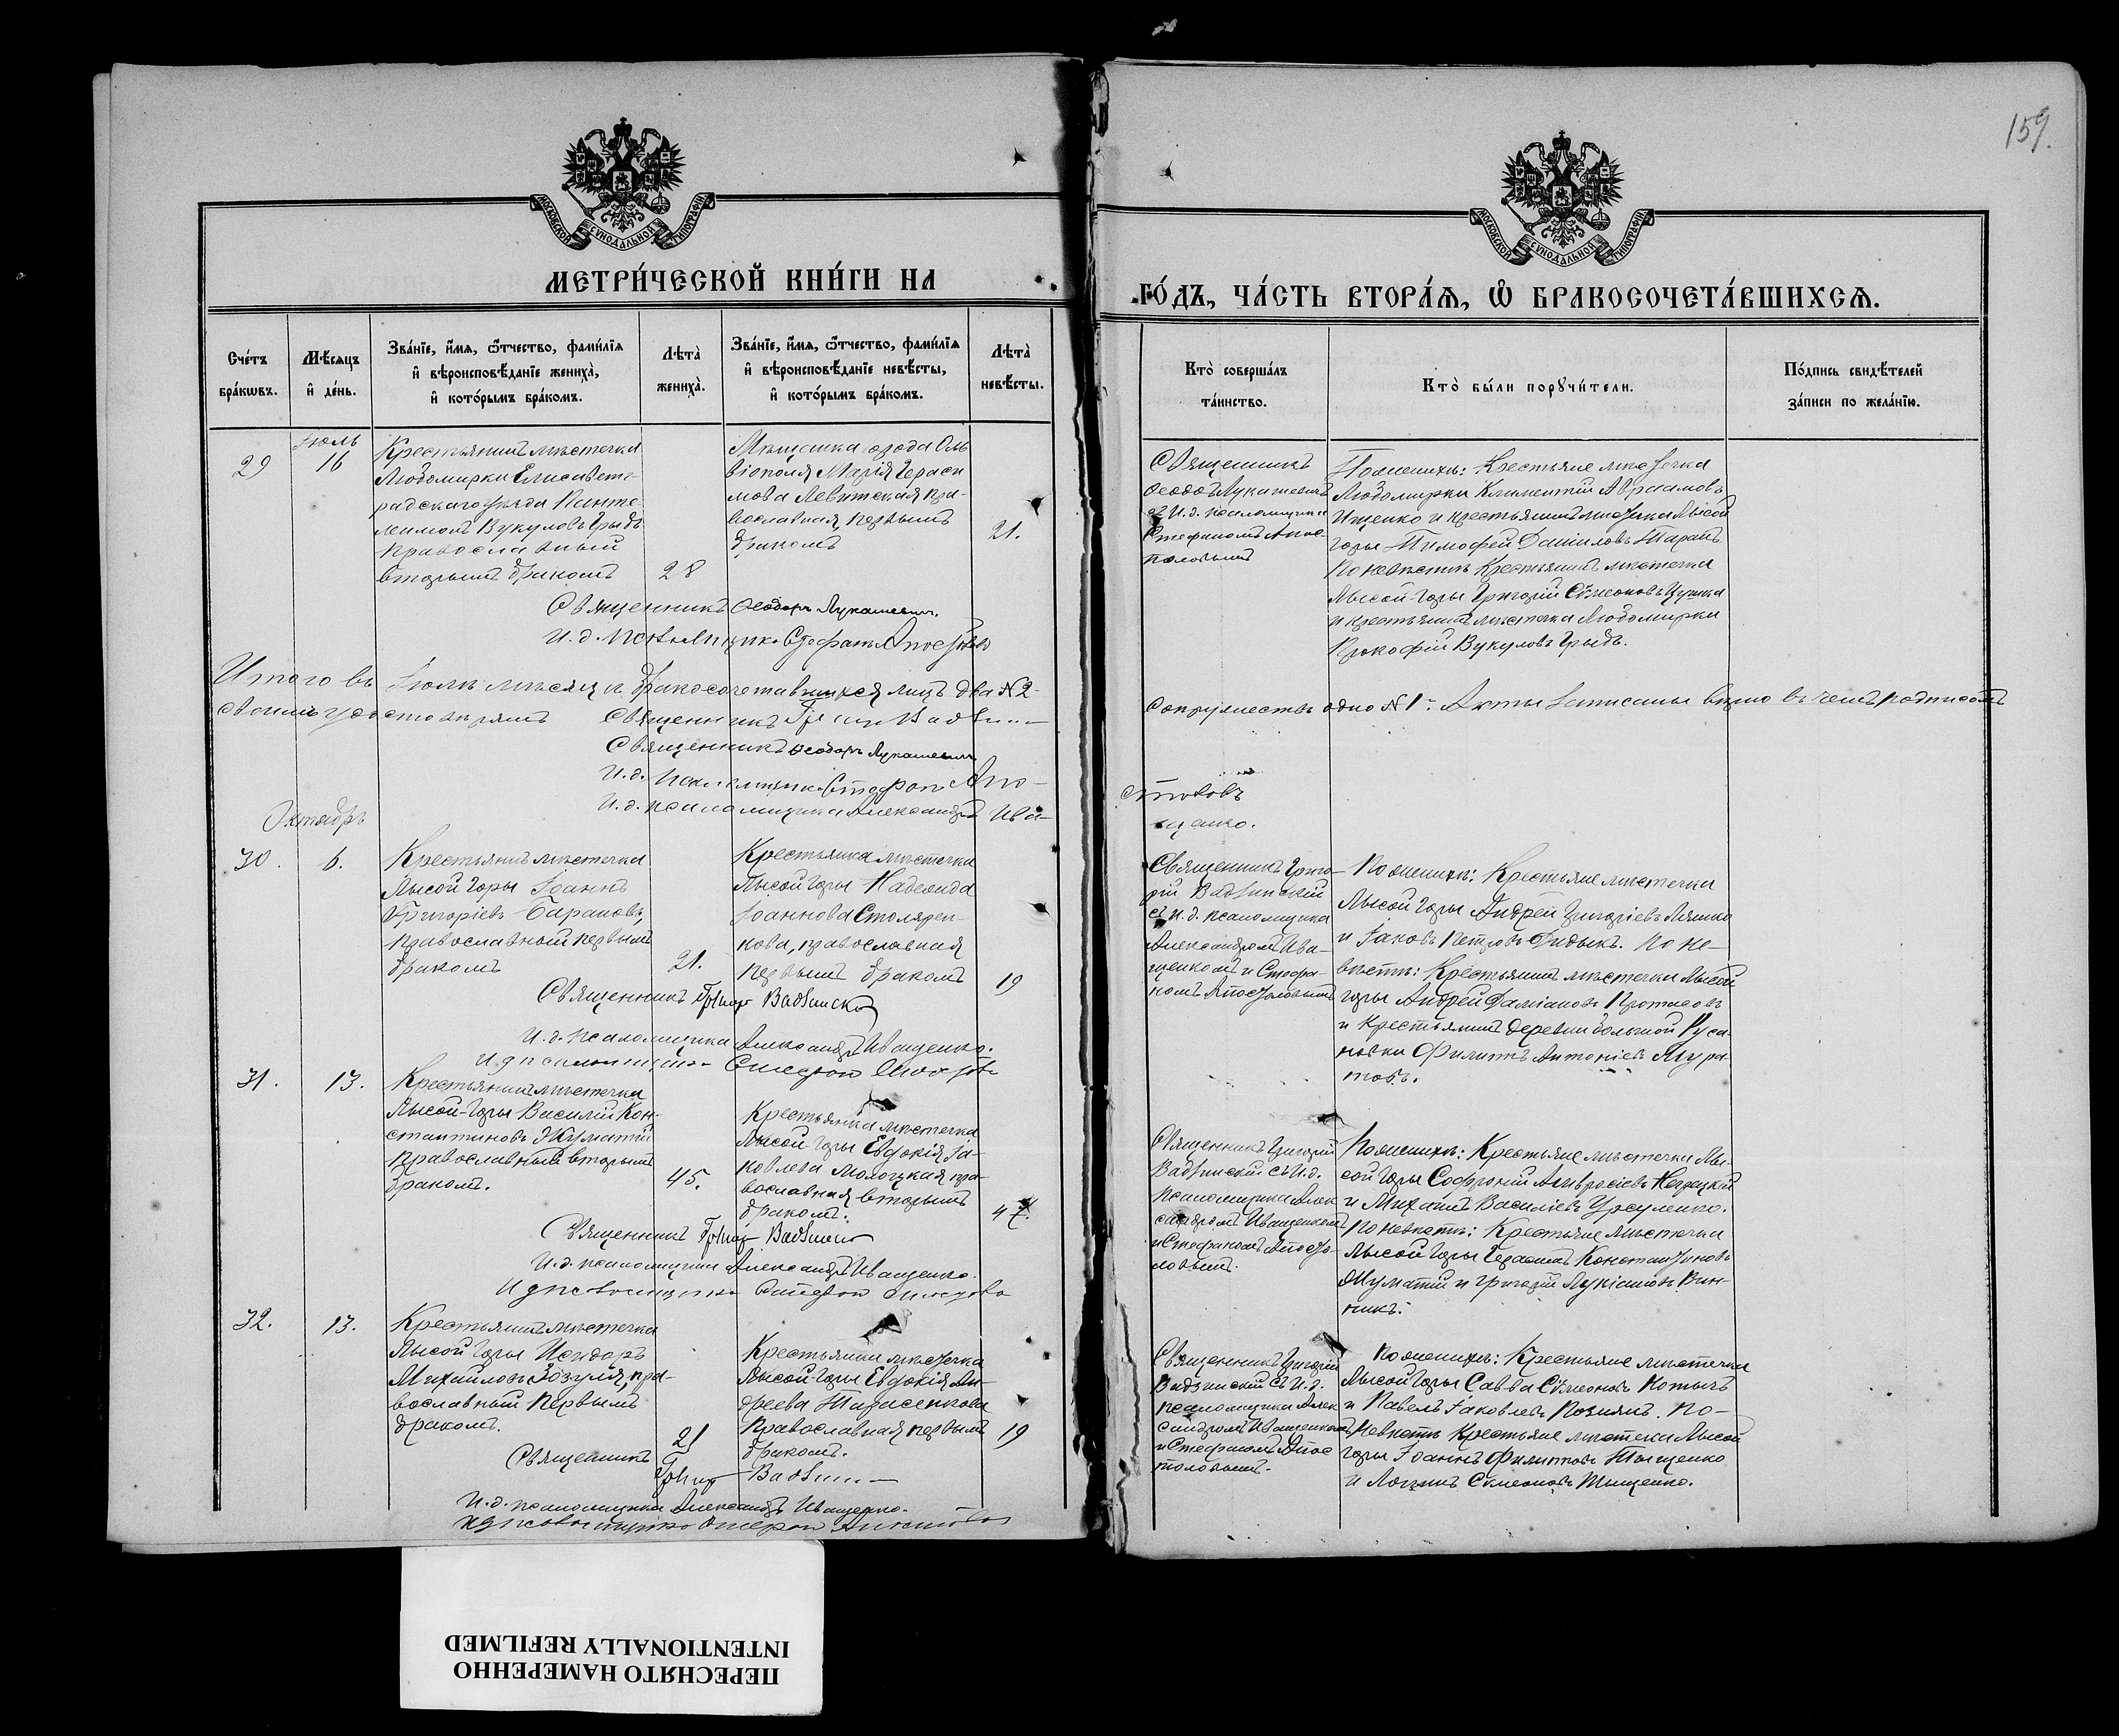 159.
МОСКОВСКОЙ СѴНОДАЛЬНОЙ ТИПОГРАФІИ
МОСКОВСКОЙ СѴНОДАЛЬНОЙ ТИПОГРАФІИ
МЕТРИ́ЧЕСКОЙ КНИ́ГИ НА
ГО́ДЪ, ЧА́СТЬ ВТОРА́Я, Ѡ҆ БРАКОСОЧЕТА́ВШИХСЯ.
Сче́тъ
бра́кѡвъ.
Мѣ́сяцъ
и҆ де́нь.
Зва́нїе, и҆́мя, ѻ҆́тчество, фами́лїя
и҆ вѣроисповѣ́данїе жениха̀,
и҆ кото́рымъ бра́комъ.
Лѣта̀
жениха̀.
Зва́нїе, и҆́мя, ѻ҆́тчество, фами́лїя
и҆ вѣроисповѣ́данїе невѣ́сты,
и҆ кото́рымъ бра́комъ.
Лѣта̀
невѣ́сты.
Кто̀ соверша́лъ
та́инство.
Кто̀ бы́ли порꙋчи́тели.
По́дпись свидѣ́телей
за́писи по жела́нїю.
29
Іюль
16
Крестьянинъ мѣстечка
Людомирки Елисавет-
радскаго уѣзда Панте
леимонъ Вукуловъ Грыдъ
православный
вторымъ бракомъ
28
Мѣщанка города Оль
віополя Марія Гераси
мова Левитская пра-
вославная, первымъ
бракомъ
21.
Священникъ
Ѳеодоръ Лукашевичъ
съ И.д. псаломщика
Стефаномъ Апос-
толовымъ
По женихѣ: Крестьяне мѣстечка
Людомирки Климентій Авраамовъ
Ищенко и крестьянинъ мѣстечка Лысой
горы Тимофей Даниловъ Таранъ
По невѣстѣ Крестьянинъ мѣстечка
Лысой-Горы Григорій Сѵмеоновъ
и крестьянинъ мѣстечка Людомирки
Прокофій Вукуловъ Грыдъ.
Священникъ Ѳеодоръ Лукашевичъ.
И.д. псаломщика Стефанъ Апостоловъ
Итого въ Іюлѣ мѣсяцѣ бракосочетавшихся лицъ два №2-
супружествъ одно №1-. Акты записаны вѣрно въ чемъ подписомъ
своимъ удостовѣряемъ Священникъ
Священникъ Ѳеодоръ Лукашевичъ
И.д. псаломщика Стефанъ Апо-
столовъ
И.д. псаломщика Александръ Ива-
щенко.
Октябрь
30.
6.
Крестьянинъ мѣстечка
Лысой Горы Іоаннъ
Григоріевъ Барановъ,
православный первымъ
бракомъ
21.
Крестьянка мѣстечка
Лысой Горы Надежда
Іоаннова Столярен-
кова, православная
первымъ бракомъ
19
Священникъ Григо-
рій Вадзинскій
съ И.д. псаломщика
Александромъ Ива-
щенкомъ и Стефа-
номъ Апостоловымъ
По женихѣ: Крестьяне мѣстечка
Лысой Горы Андрей Григоріевъ Ляшко
и Іаковъ Петровъ Фидыкъ. По не-
вѣстѣ: Крестьянинъ мѣстечка Лысой
Горы Андрей Даміановъ Протасовъ
и Крестьянинъ деревни Большой Руса-
новки Филиппъ Антоніевъ Мура-
товъ.
Священникъ Григор Вадзинскій
И.д. псаломщика Александръ Иващенко.
И д псаломщика Стефанъ Апостоловъ
31.
13.
Крестьянинъ мѣстечка
Лысой-Горы Василій Кон-
стантиновъ Жуматій
православный вторымъ
бракомъ.
45.
Крестьянка мѣстечка
Лысой Горы Евдокія Іа-
ковлева Молоцкая пра-
вославная вторымъ
бракомъ.
Священникъ Григорій
Вадзинскій съ И.д.
псаломщика Алек
сандромъ Иващенкомъ
и Стефаномъ Апосто-
ловымъ.
По женихѣ: Крестьяне мѣстечка Лы-
сой Горы Софроній Амвросіевъ
и Михаилъ Василіевъ Урсуленко.
По невѣстѣ: Крестьяне мѣстечка
Лысой Горы Герасимъ Константиновъ
Жуматій и Григорій Лукіановъ Вин-
никъ.
Священникъ Григор Вадзинскій
И.д. псаломщика Александръ Иващенко.
И д псаломщика Стефанъ Апостоловъ
32.
13.
Крестьянинъ мѣстечка
Лысой Горы Исидоръ
Михайловъ Зозуля, пра-
вославный первымъ
бракомъ.
21
Крестьянка мѣстечка
Лысой-Горы Евдокія Ан-
дреева Тарасенкова
православная первымъ
бракомъ.
19
Священникъ Григорій
Вадзинскій съ И.д.
псаломщика Алек
сандромъ Иващенкомъ
и Стефаномъ Апос
толовымъ.
По женихѣ: Крестьяне мѣстечка
Лысой Горы Савва Сѵмеоновъ
и Павелъ Іаковлевъ Познякъ. По-
Невѣстѣ Крестьяне мѣстечка Лысой
горы Іоаннъ Филипповъ Тищенко
и Логинъ Симеоновъ Тищенко.
Священникъ
Григор Вадзинскій
И.д. псаломщика Александръ Иващенко.
И д псаломщика Стефанъ Апостоловъ
ПЕРЕСНЯТО НАМЕРЕННО
INTENTIONALLY REFILMED